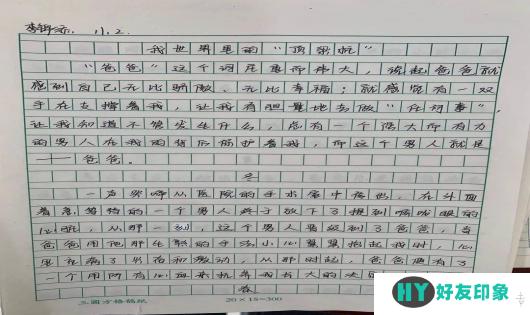 李锦添 11.2.
我世界里的“顶梁柱”
“爸爸”这个词是重而伟大，谈起爸爸就
感到自己无比骄傲、无比幸福；就感觉有一双
手在支撑着我，让我有胆量地去做“任何事”，
让我知道不管发生什么，总有一个强大而有力
的男人在我的背后庇护着我，而这个男人就是
——爸爸。
冬
一声哭啼从医院的手术室中传出，在外面
着急等待的一个男人终于放下了提到嗓咙眼的
心脏，从那一刻，这个男人晋级到了爸爸，当
爸爸用他那生疏的手法小心翼翼抱起我时，心
里充满了兴奋和激动，从那时起，爸爸便有了
一个用所有心血来抚养我长大的决
春
三圆方格稿纸 20×15=300
HY 好友印象